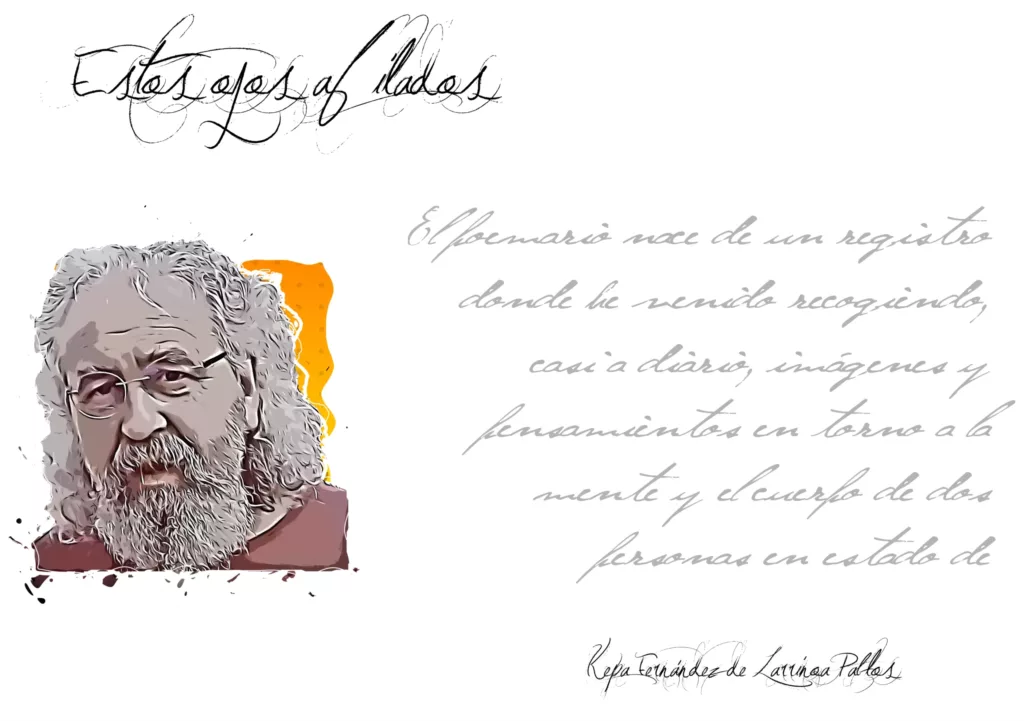 Estos ojos afilados
El poemario nace de un registro
donde he venido recogiendo,
casi a diario, imágenes y
pensamientos en torno a la
mente y el cuerpo de dos
personas en estado de
Kepa Fernández de Larrinoa Pallos